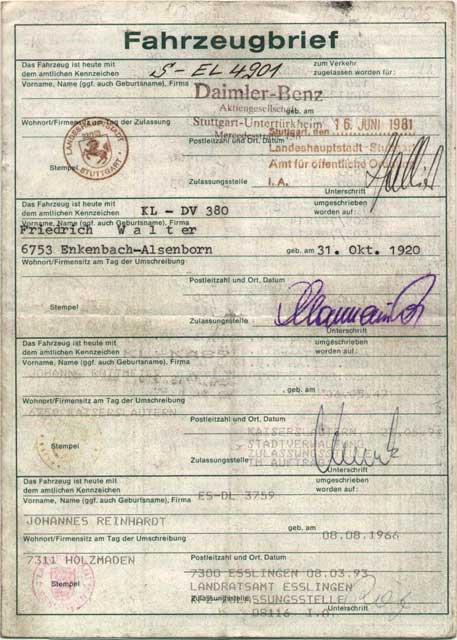 Fahrzeugbrief
Das Fahrzeug ist heute mit
dem amtlichen Kennzeichen S-EL 4901 zum Verkehr
zugelassen worden für:
Vorname, Name (ggf. auch Geburtsname), Firma
Daimler-Benz
Aktiengesellschaft geb. am
Wohnort/Firmensitz am Tag der Zulassung Stuttgart-Untertürkheim
Stuttgart, den 16. JUNI 1981
LANDESHAUPTSTADT STUTTGART
Postleitzahl und Ort, Datum
Landeshauptstadt Stuttgart
Amt für öffentliche
Stempel
Zulassungsstelle I. A.
Unterschrift
Das Fahrzeug ist heute mit
dem amtlichen Kennzeichen KL - DV 380 umgeschrieben
worden auf:
Vorname, Name (ggf. auch Geburtsname), Firma
Friedrich Walter
6753 Enkenbach-Alsenborn geb. am 31. Okt. 1920
Wohnort/Firmensitz am Tag der Umschreibung
Postleitzahl und Ort, Datum
Stempel
Zulassungsstelle
Unterschrift
Das Fahrzeug ist heute mit
dem amtlichen Kennzeichen umgeschrieben
worden auf:
Vorname, Name (ggf. auch Geburtsname), Firma
JOHANNE
geb. am
Wohnort/Firmensitz am Tag der Umschreibung
6750 KAISERSLAUTERN
Postleitzahl und Ort, Datum
KAISERSLAUTERN
STADTVERWALTUNG
Stempel
Zulassungsstelle ZULASSUNGSSTELLE
IM AUFTRAG
Unterschrift
Das Fahrzeug ist heute mit
dem amtlichen Kennzeichen umgeschrieben
worden auf:
Vorname, Name (ggf. auch Geburtsname), Firma ES-DL 3759
JOHANNES REINHARDT
geb. am 08.08.1966
Wohnort/Firmensitz am Tag der Umschreibung
7311 HOLZMADEN
Postleitzahl und Ort, Datum
7300 ESSLINGEN 08.03.93
Stempel
LANDRATSAMT ESSLINGEN
Zulassungsstelle KFZ-ZULASSUNGSSTELLE
08116 I.A.
Unterschrift